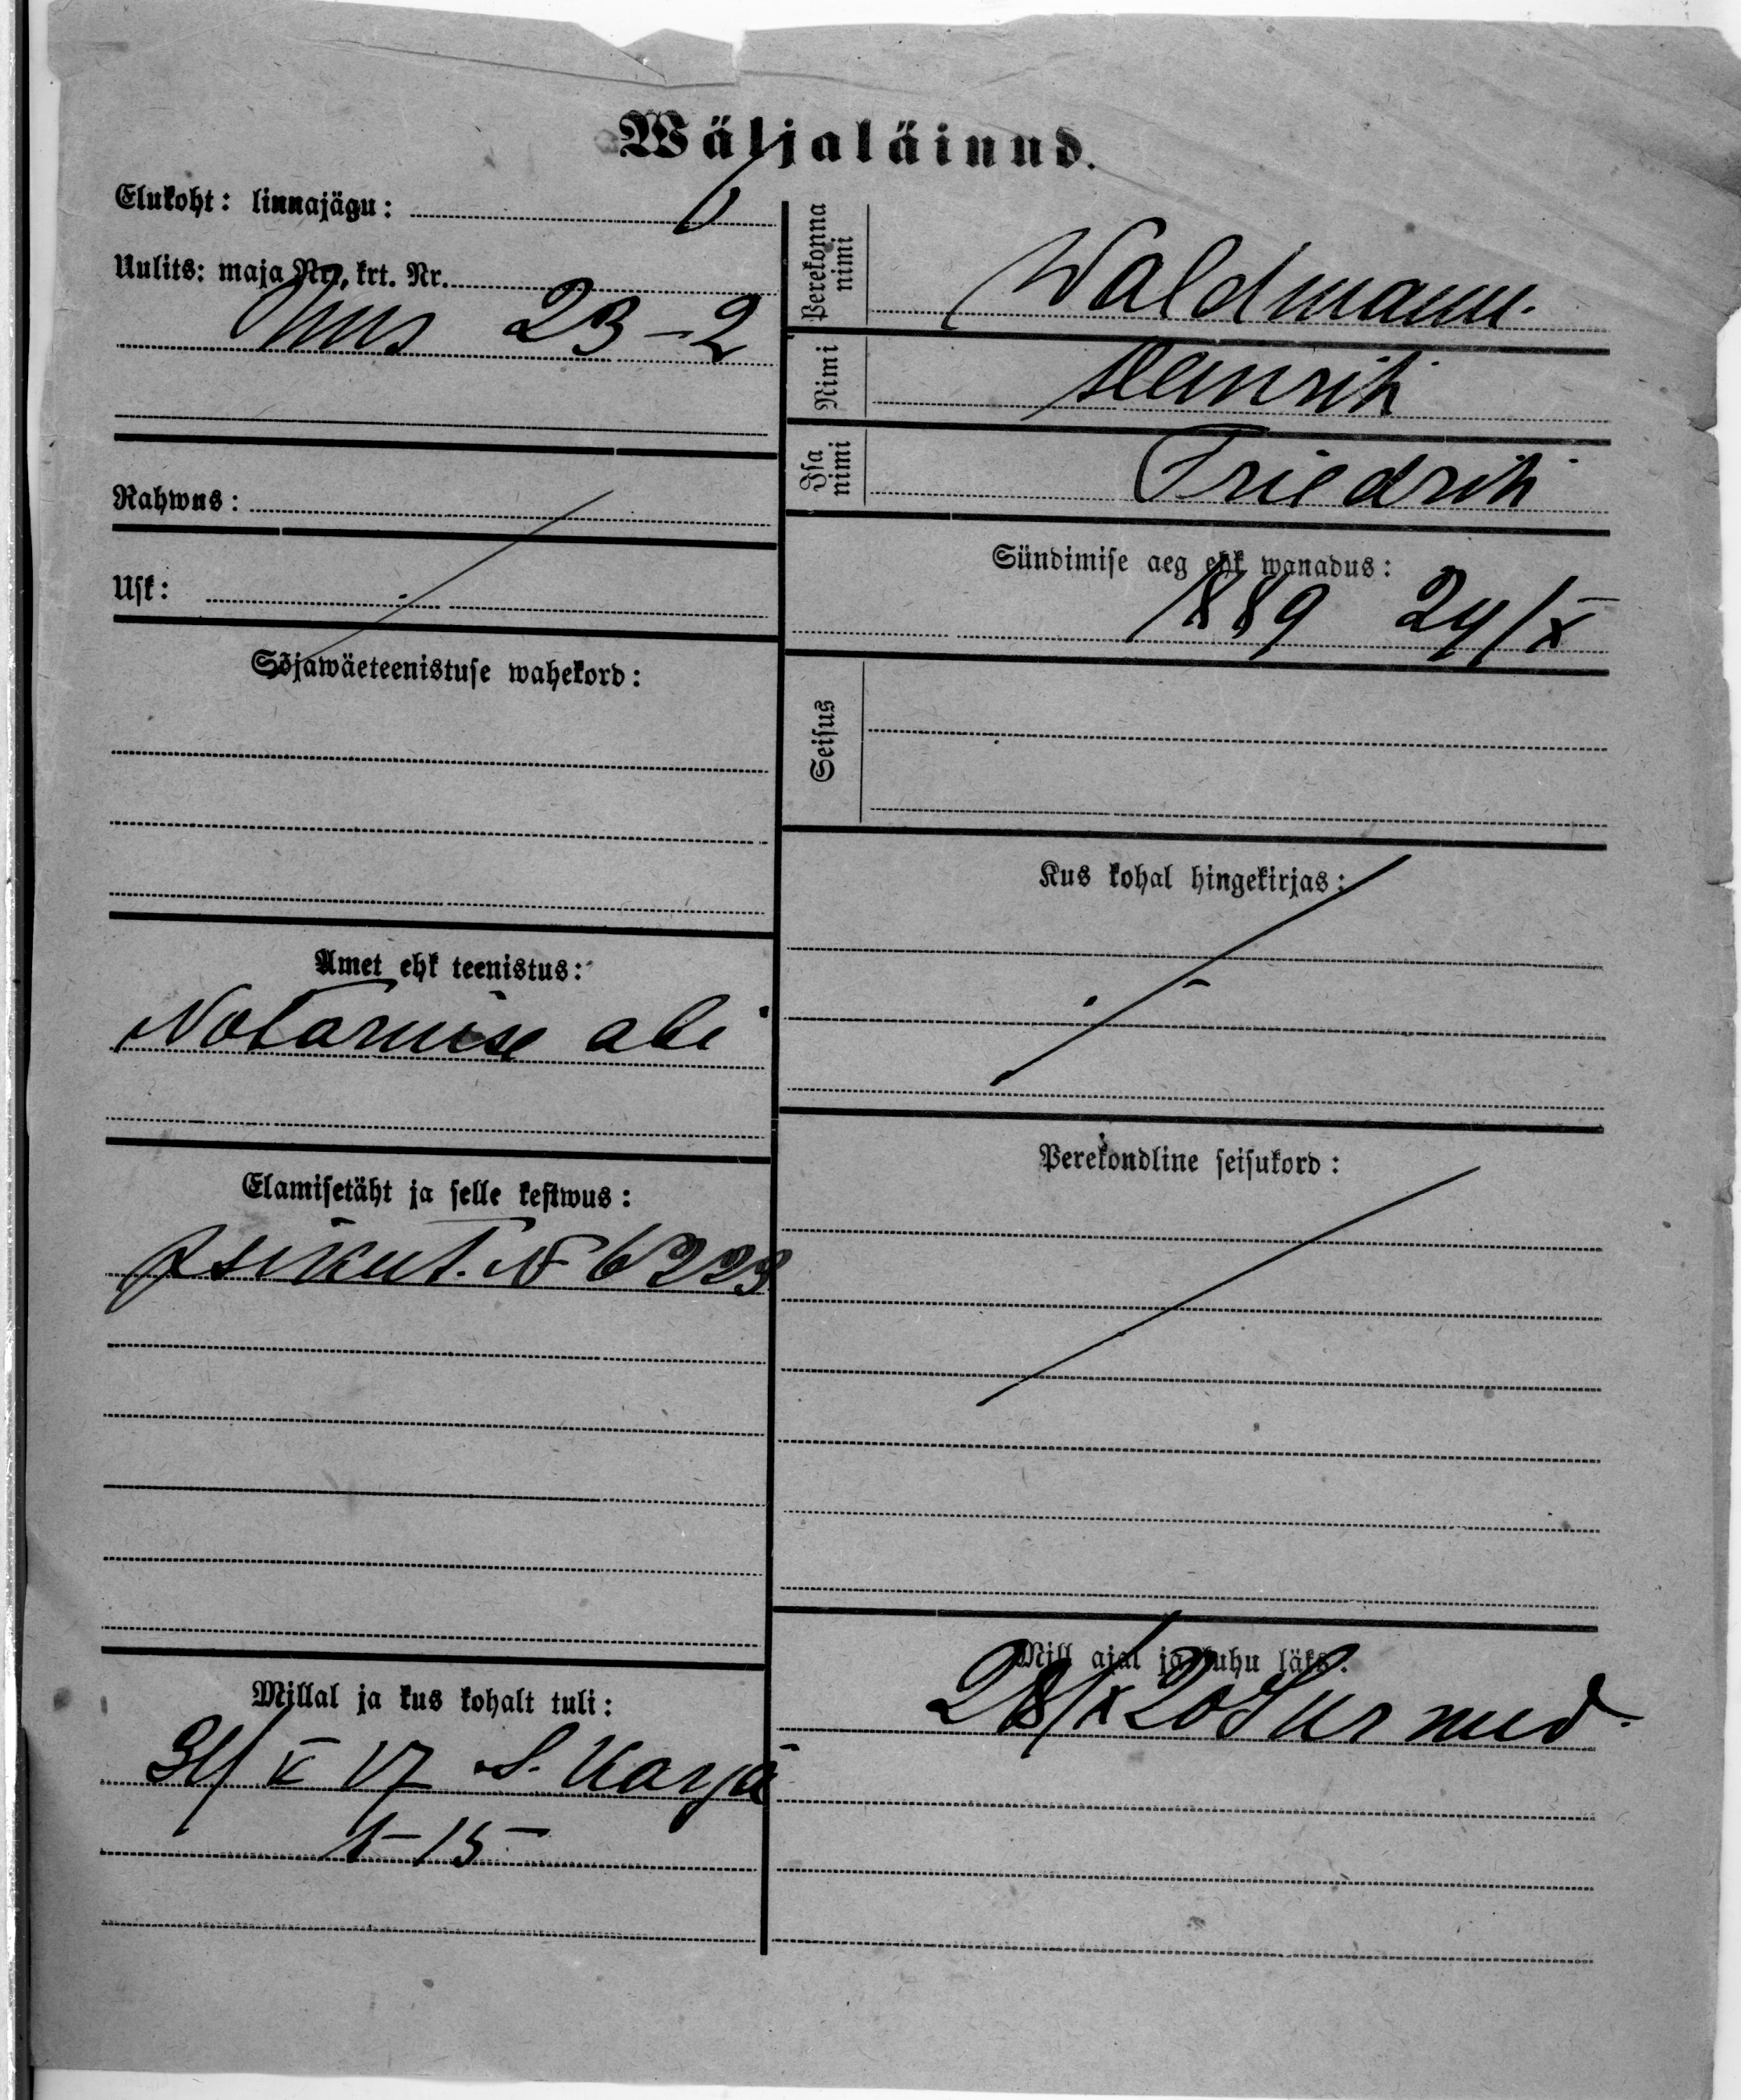 Wäljaläinud.
Elukoht: linnajägu: I
Uulits: maja Nr., krt. Nr.
Uus 23-2
Rahwus:
Usk:
Sõjawäeteenistuse wahekord:
Amet ehk teenistus:
Notariuse abi
Elamisetäht ja selle kestwus:
Isikut. № 6223
Millal ja kus kohalt tuli:
31/X 17 S. Karja
1-15
Perekonna nimi
Waldmann.
Nimi
Heinrih
Isa nimi
Friedrih
Sündimise aeg ehk wanadus:
1889 24/X
Seisus
Kus kohal hingekirjas:
Perekondline seisukord:
Mill ajal ja kuhu läks:
28/X 20 Surnud.